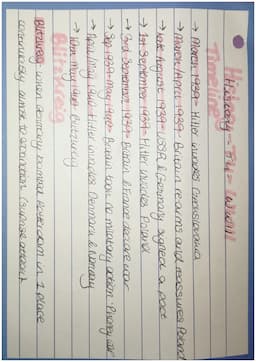 History - [WWII]
Timeline
→ March 1939 - Hitler invades Czechoslovakia
→ March/April 1939 - Britain rearms and reassures Poland
→ late August 1939 - USSR & Germany signed a pact
→ 1st September 1939 - Hitler invades Poland
→ 3rd September 1939 - Britain & France declare war
→ Sep 1939 - May 1940 - Britain took no military action 'Phoney war'
→ April/May 1940 - Hitler invades Denmark & Norway
→ 10th May 1940 - Blitzkrieg
Blitzkrieg
Blitzkrieg when Germany bombed Rotterdam in 1 place
continuously